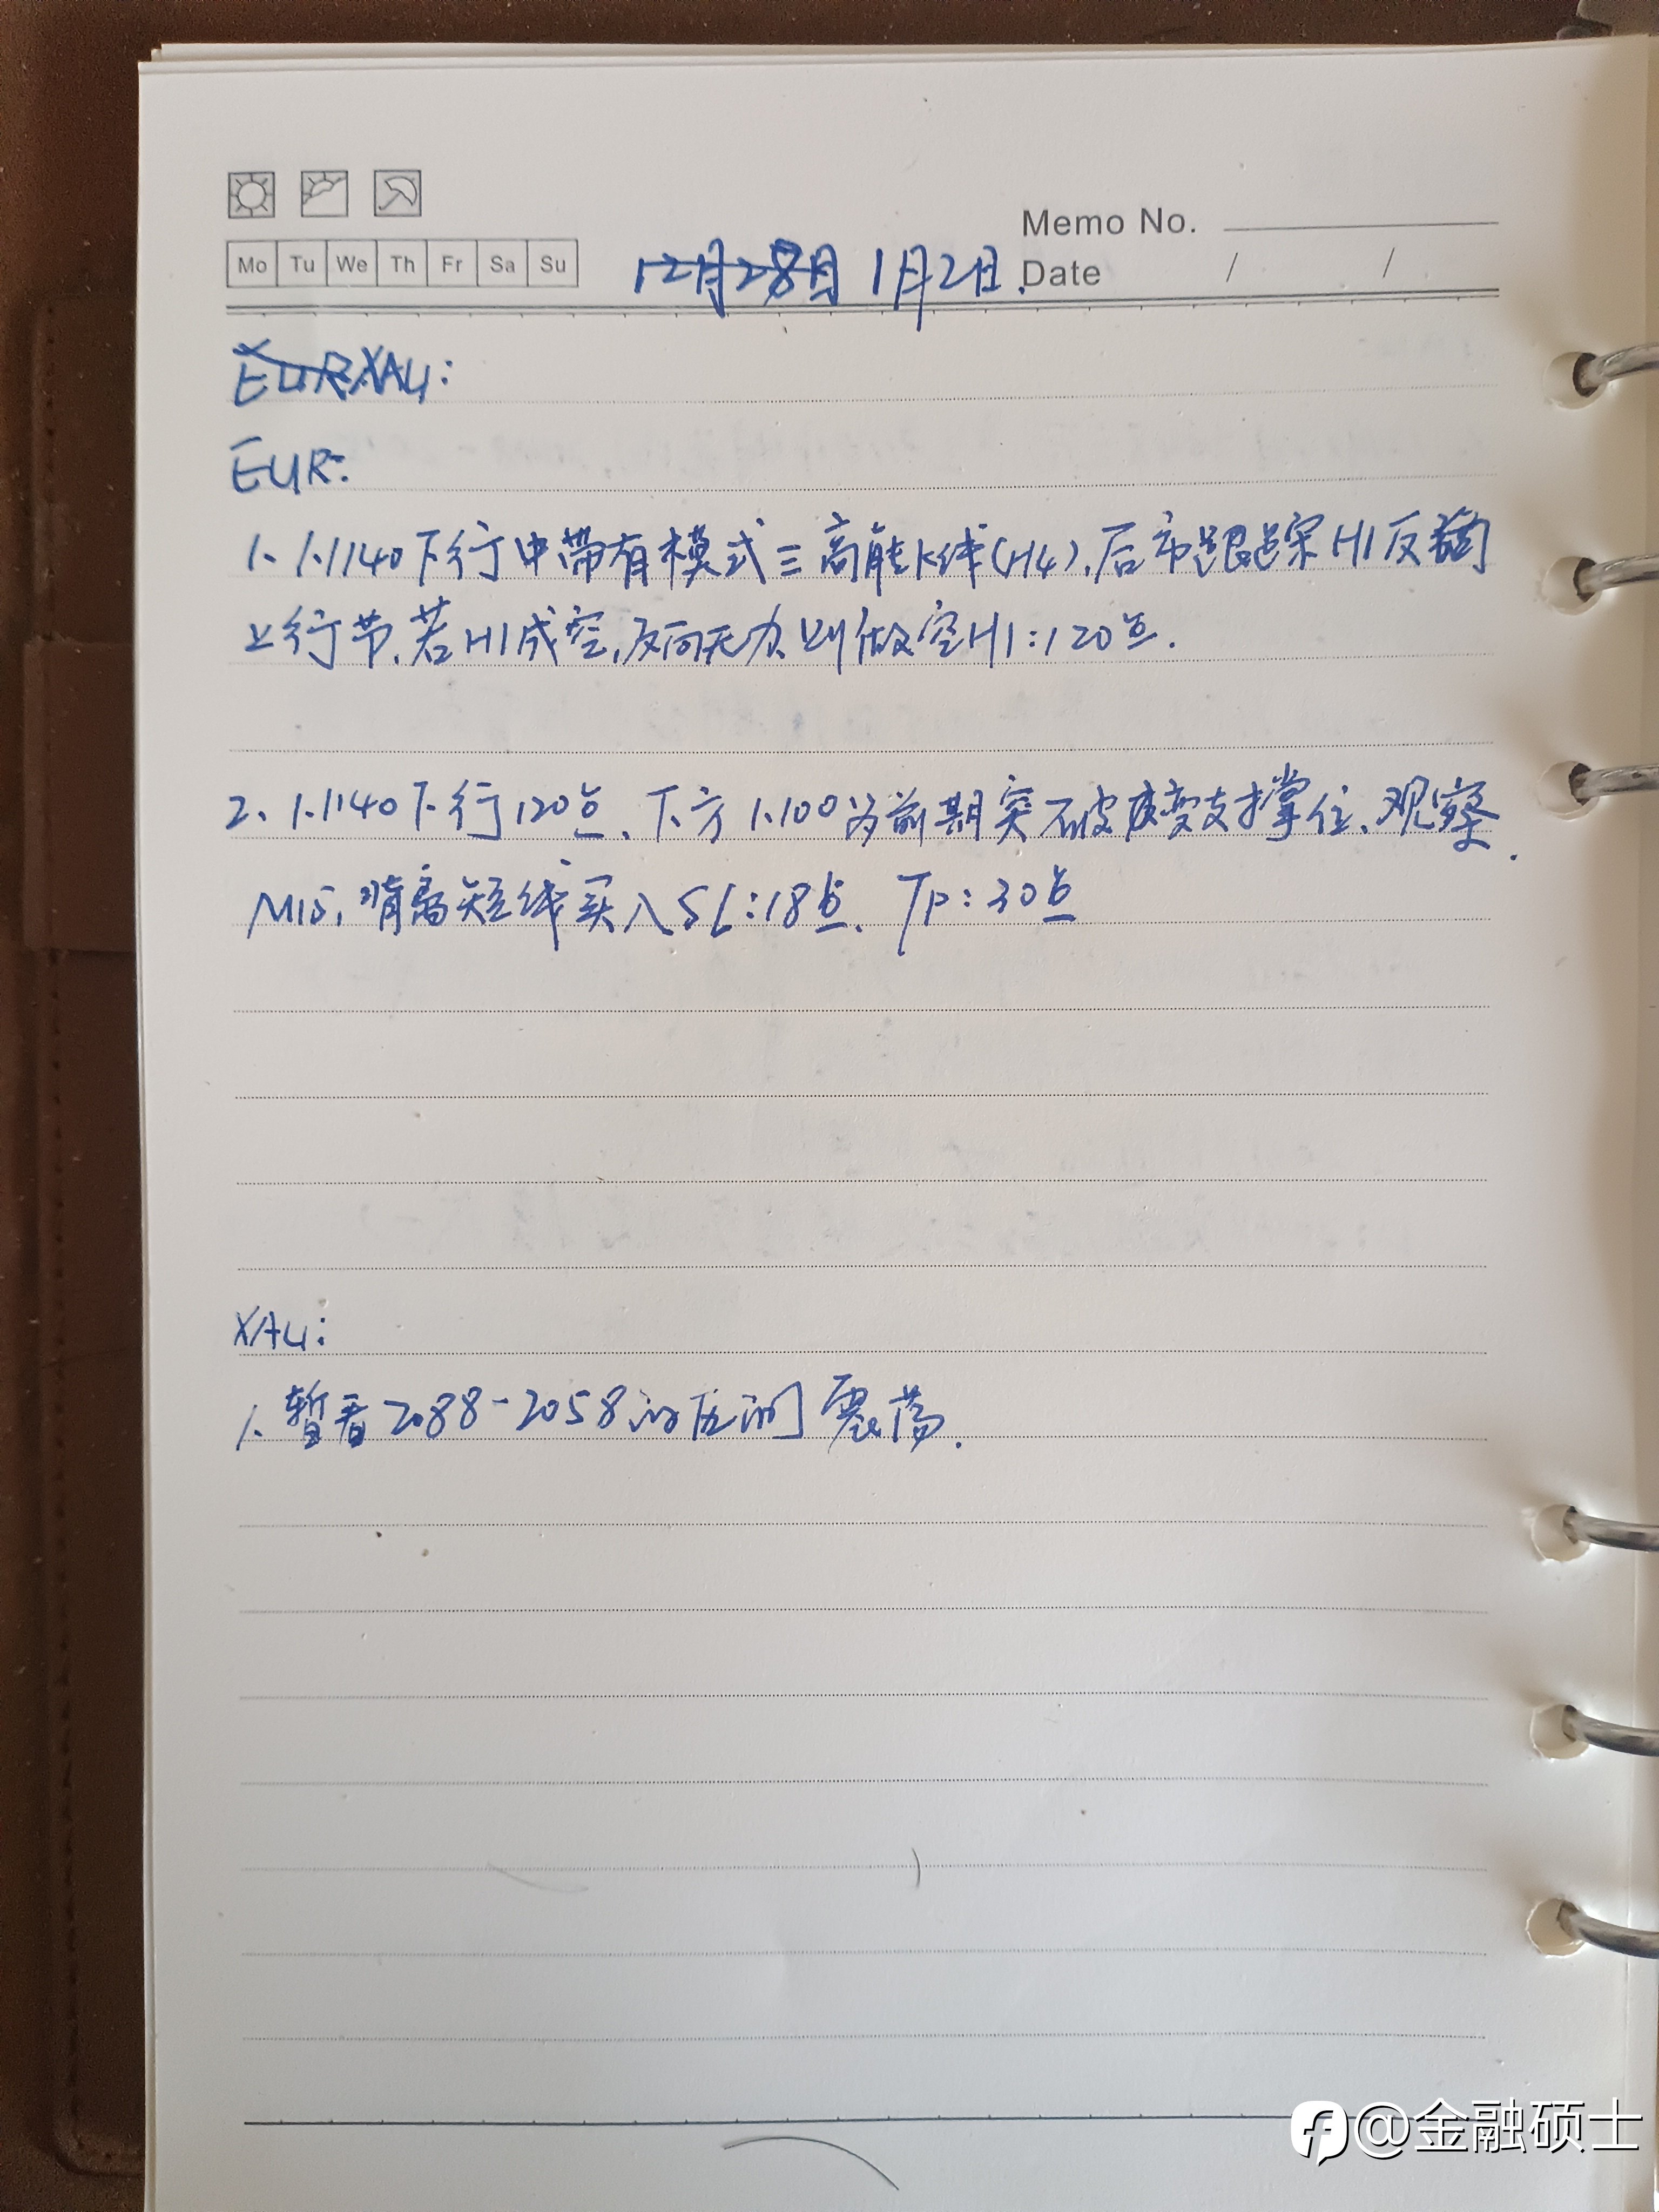 Memo No.
Mo Tu We Th Fr Sa Su
12月28日 1月2日.
Date / /
EURXAU:
EUR:
1、1.1140下行中带有模式三高能K线(H4),后市跟踪H1反向
上行节,若H1成空,反向无力,则做空H1:120点.
2、1.1140下行120点、下方1.100为前期突破度变支撑位、观察
M15,背离短线买入SL:18点、TP:30点
XAU:
1、暂看2088-2058的区间震荡.
@金融硕士